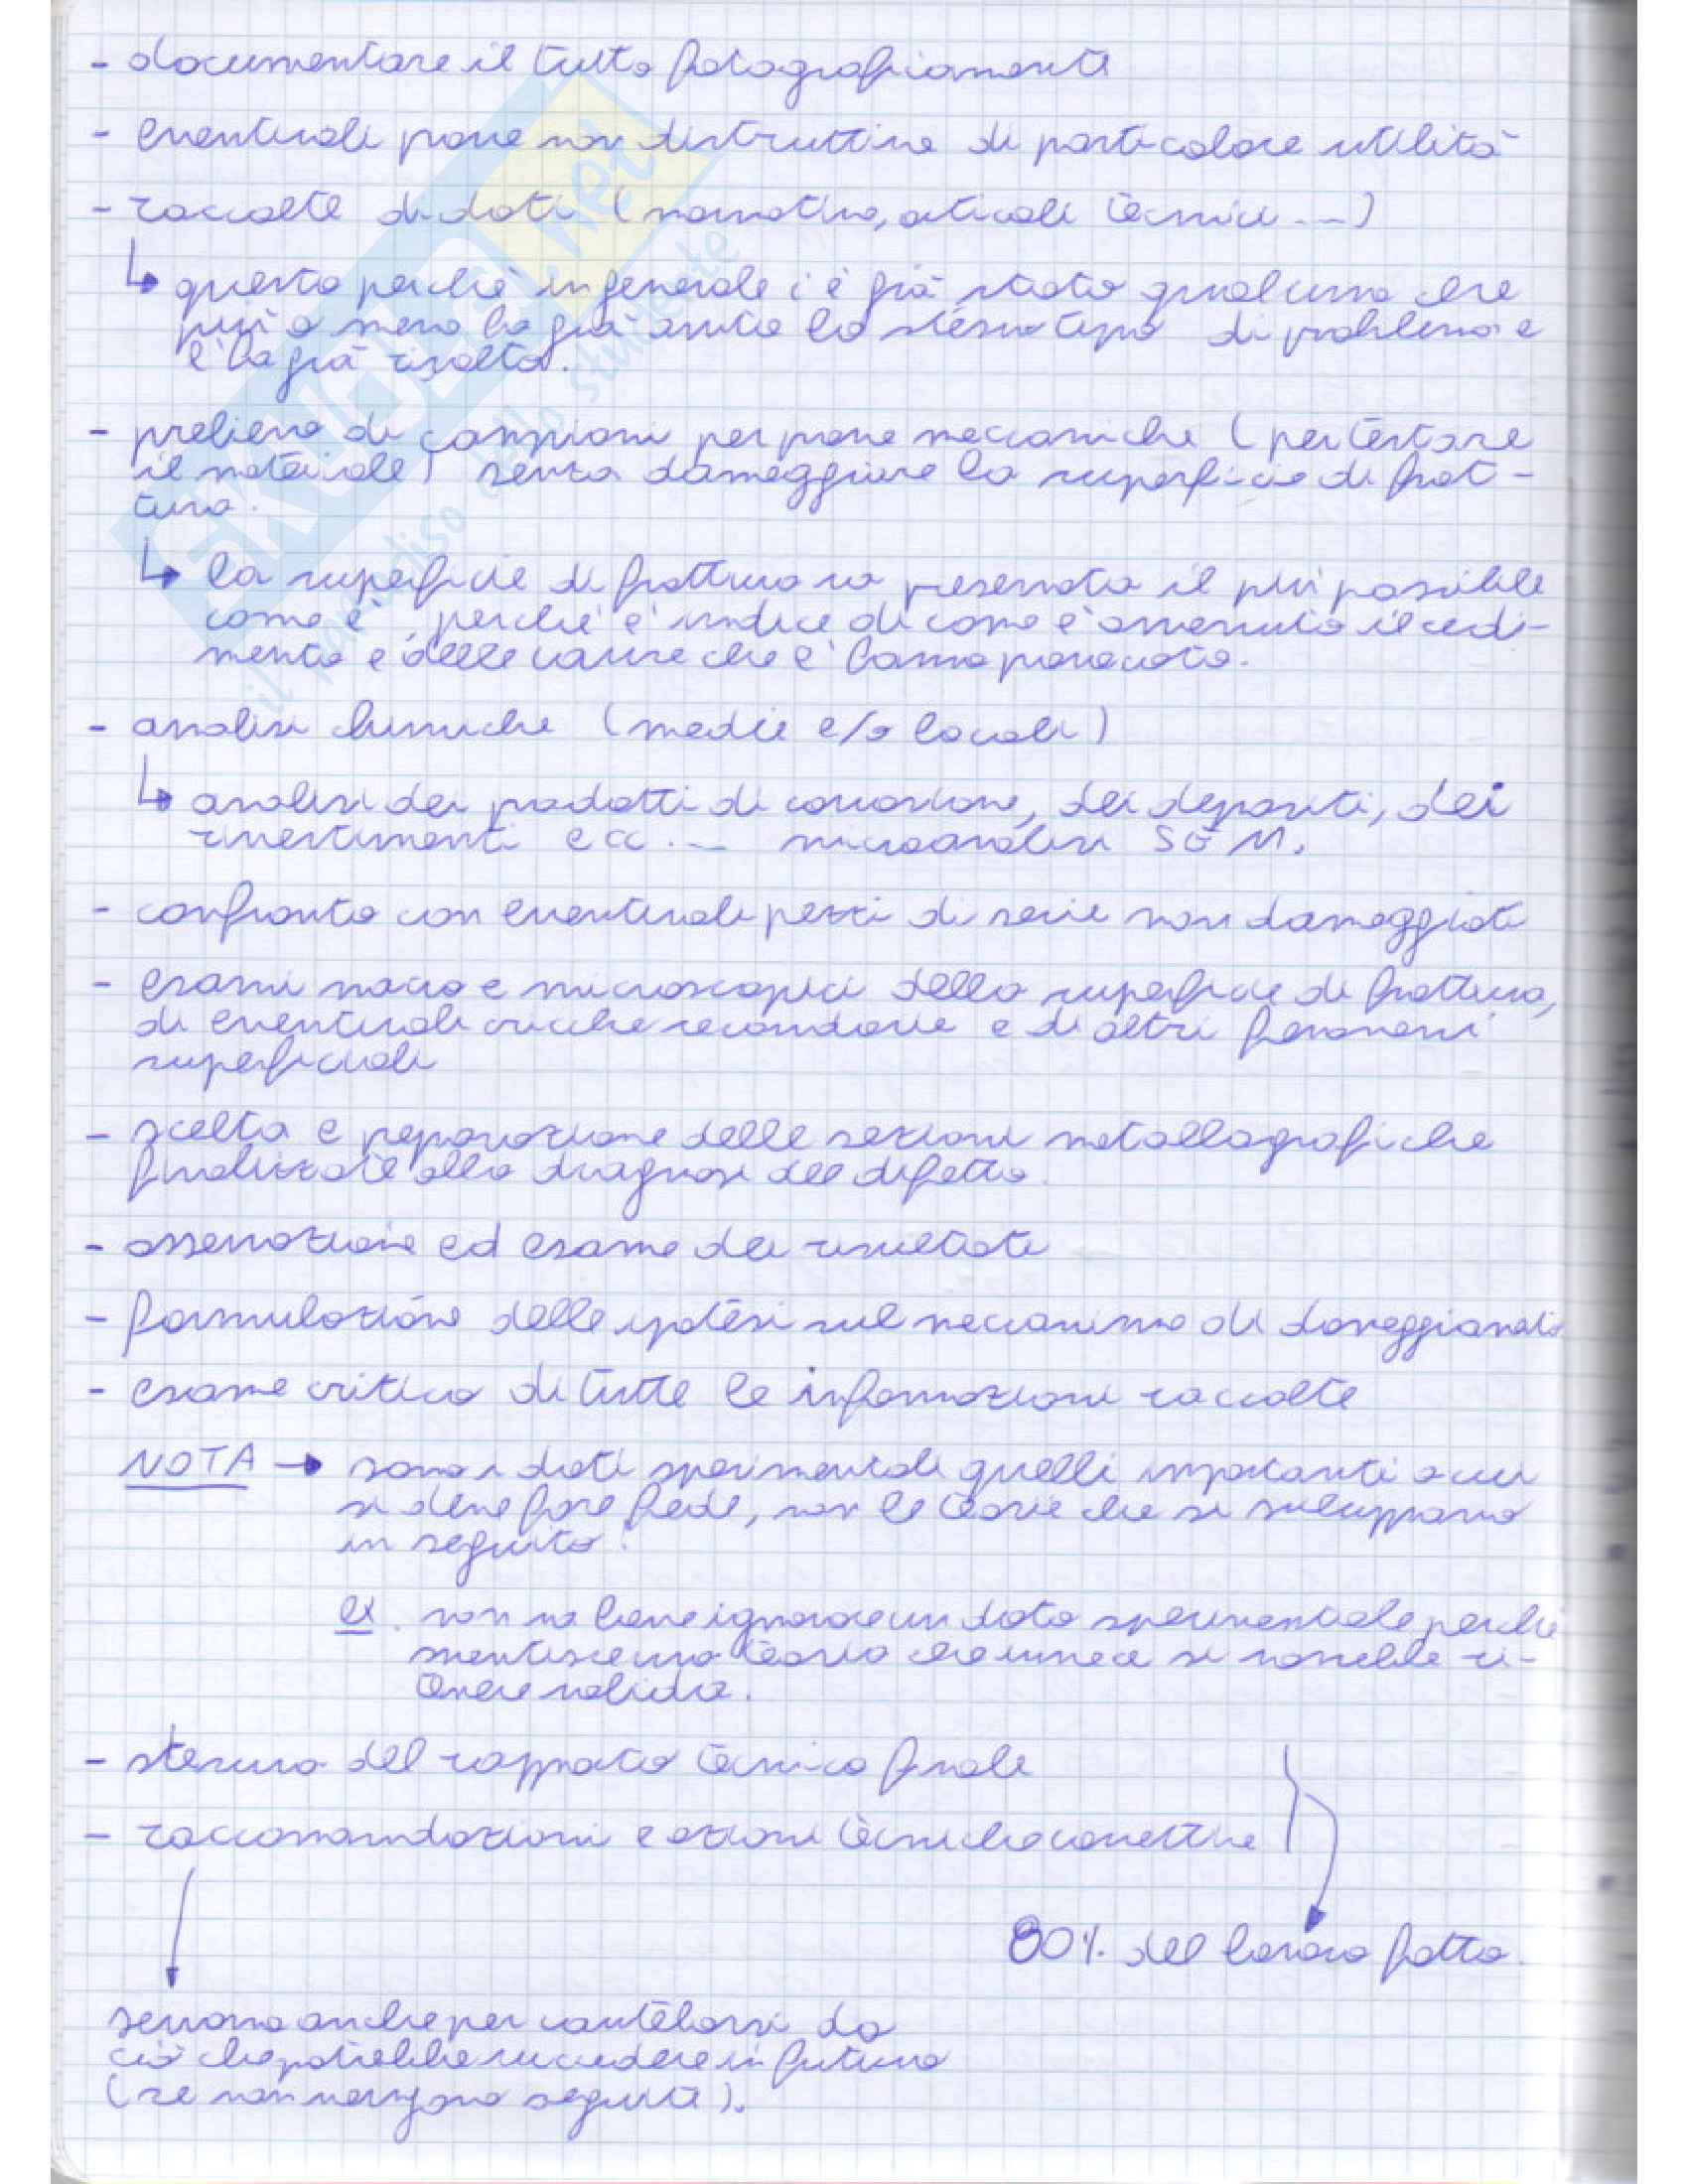 - documentare il tutto fotograficamente
- eventuali prove non distruttive di particolare utilità
- raccolte di dati (normative, articoli tecnici ...)
↳ questo perché in generale c'è già stato qualcuno che
più o meno ha già avuto lo stesso tipo di problema e
l'ha già risolto.
- prelievo di campioni per prove meccaniche (per testare
il materiale) senza danneggiare la superficie di frat-
tura.
↳ la superficie di frattura va preservata il più possibile
come è, perché è indice di come è avvenuto il cedi-
mento e delle cause che l'hanno provocato.
- analisi chimiche (medie e/o locali)
↳ analisi dei prodotti di corrosione, dei depositi, dei
rivestimenti ecc... microanalisi SEM.
- confronto con eventuali pezzi di serie non danneggiati
- esami macro e microscopici della superficie di frattura,
di eventuali cricche secondarie e di altri fenomeni
superficiali
- scelta e preparazione delle sezioni metallografiche
finalizzate alla diagnosi del difetto.
- osservazione ed esame dei risultati
- formulazione delle ipotesi sul meccanismo di danneggiamento
- esame critico di tutte le informazioni raccolte
NOTA → sono i dati sperimentali quelli importanti a cui
si deve fare fede, non le teorie che si sviluppano
in seguito!
ex. non va bene ignorare un dato sperimentale perché
smentisce una teoria che invece si vorrebbe ri-
tenere valida.
- stesura del rapporto tecnico finale
- raccomandazioni e azioni tecniche correttive
80% del lavoro fatto.
servono anche per cautelarsi da
ciò che potrebbe succedere in futuro
(se non vengono seguite).
SKUOLA.net
il paradiso dello studente